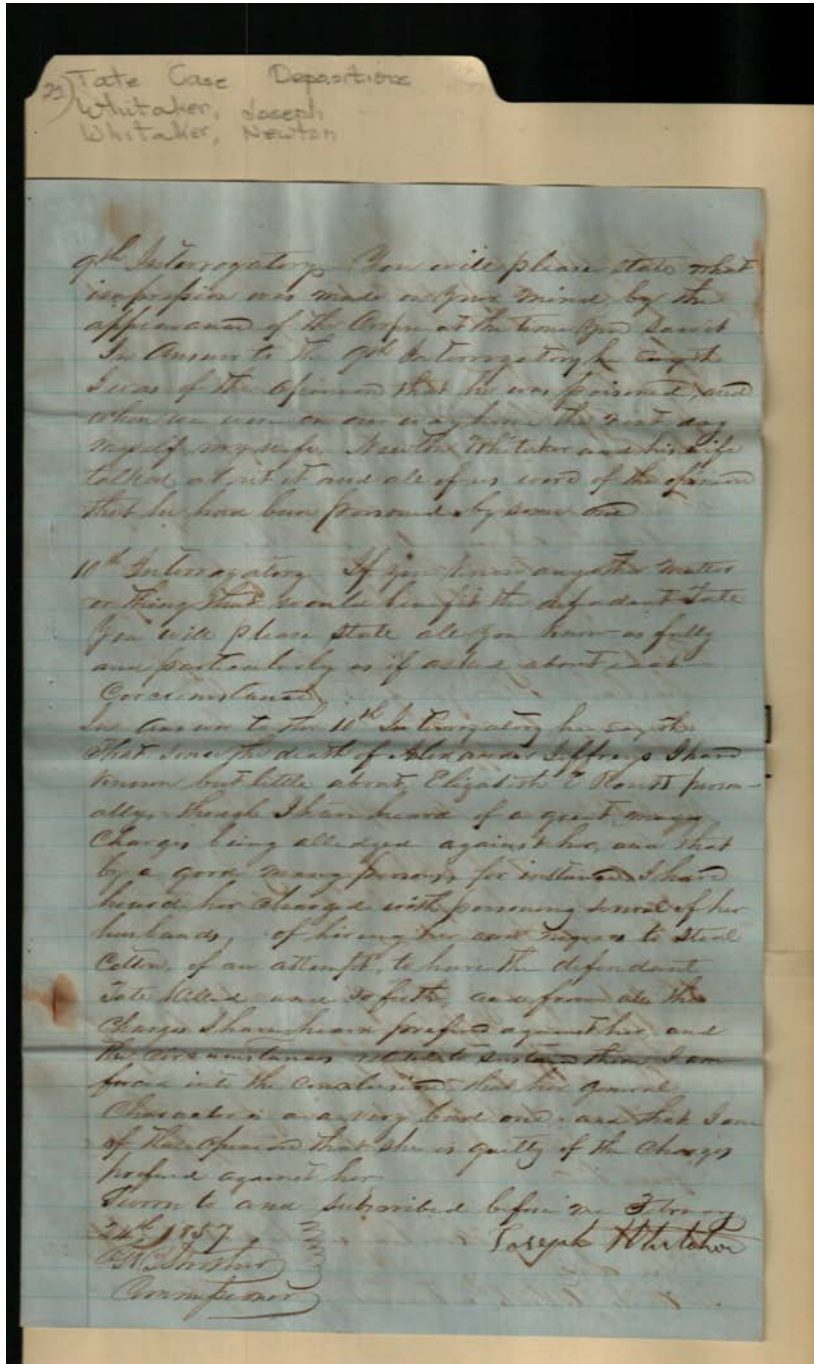 22) Tate Case Depositions
Whitaker, Joseph
Whitaker, Newton
9th Interrogatory You will please state what
impression was made on your mind by the
appearance of the Corpse at the time you saw it
In Answer to the 9th Interrogatory he sayeth
I was of the opinion that he was poisoned, and
when we were on our way home the next day
myself my wife Newton Whitaker and his wife
talked about it and all of us were of the opinion
that he had been poisoned by some one
10th Interrogatory If you know any other matter
or thing that would benefit the defendant Tate
You will please state all you know as fully
and particularly as if asked about each
Corcumstance
In Answer to the 10th Interrogatory he sayeth
That since the death of Alexander Jeffreys I have
known but little about Elizabeth E Routt person-
ally, though I have heard of a great many
Charges being alledged against her, and that
by a good many persons for instance I have
heard her charged with poisoning several of her
husbands, of hireing her own negroes to steal
Cotton, of an attempt, to have the defendant
Tate killed and so forth and from all the
Charges I have heard prefered against her, and
the circumstances related to sustain them I am
forced into the conclusion that her general
Character is a very bad one, and that I am
of the opinion that she is guilty of the charges
prefered against her
Sworn to and subscribed before me February
24th 1857
Joseph Whitaker
Commissioner